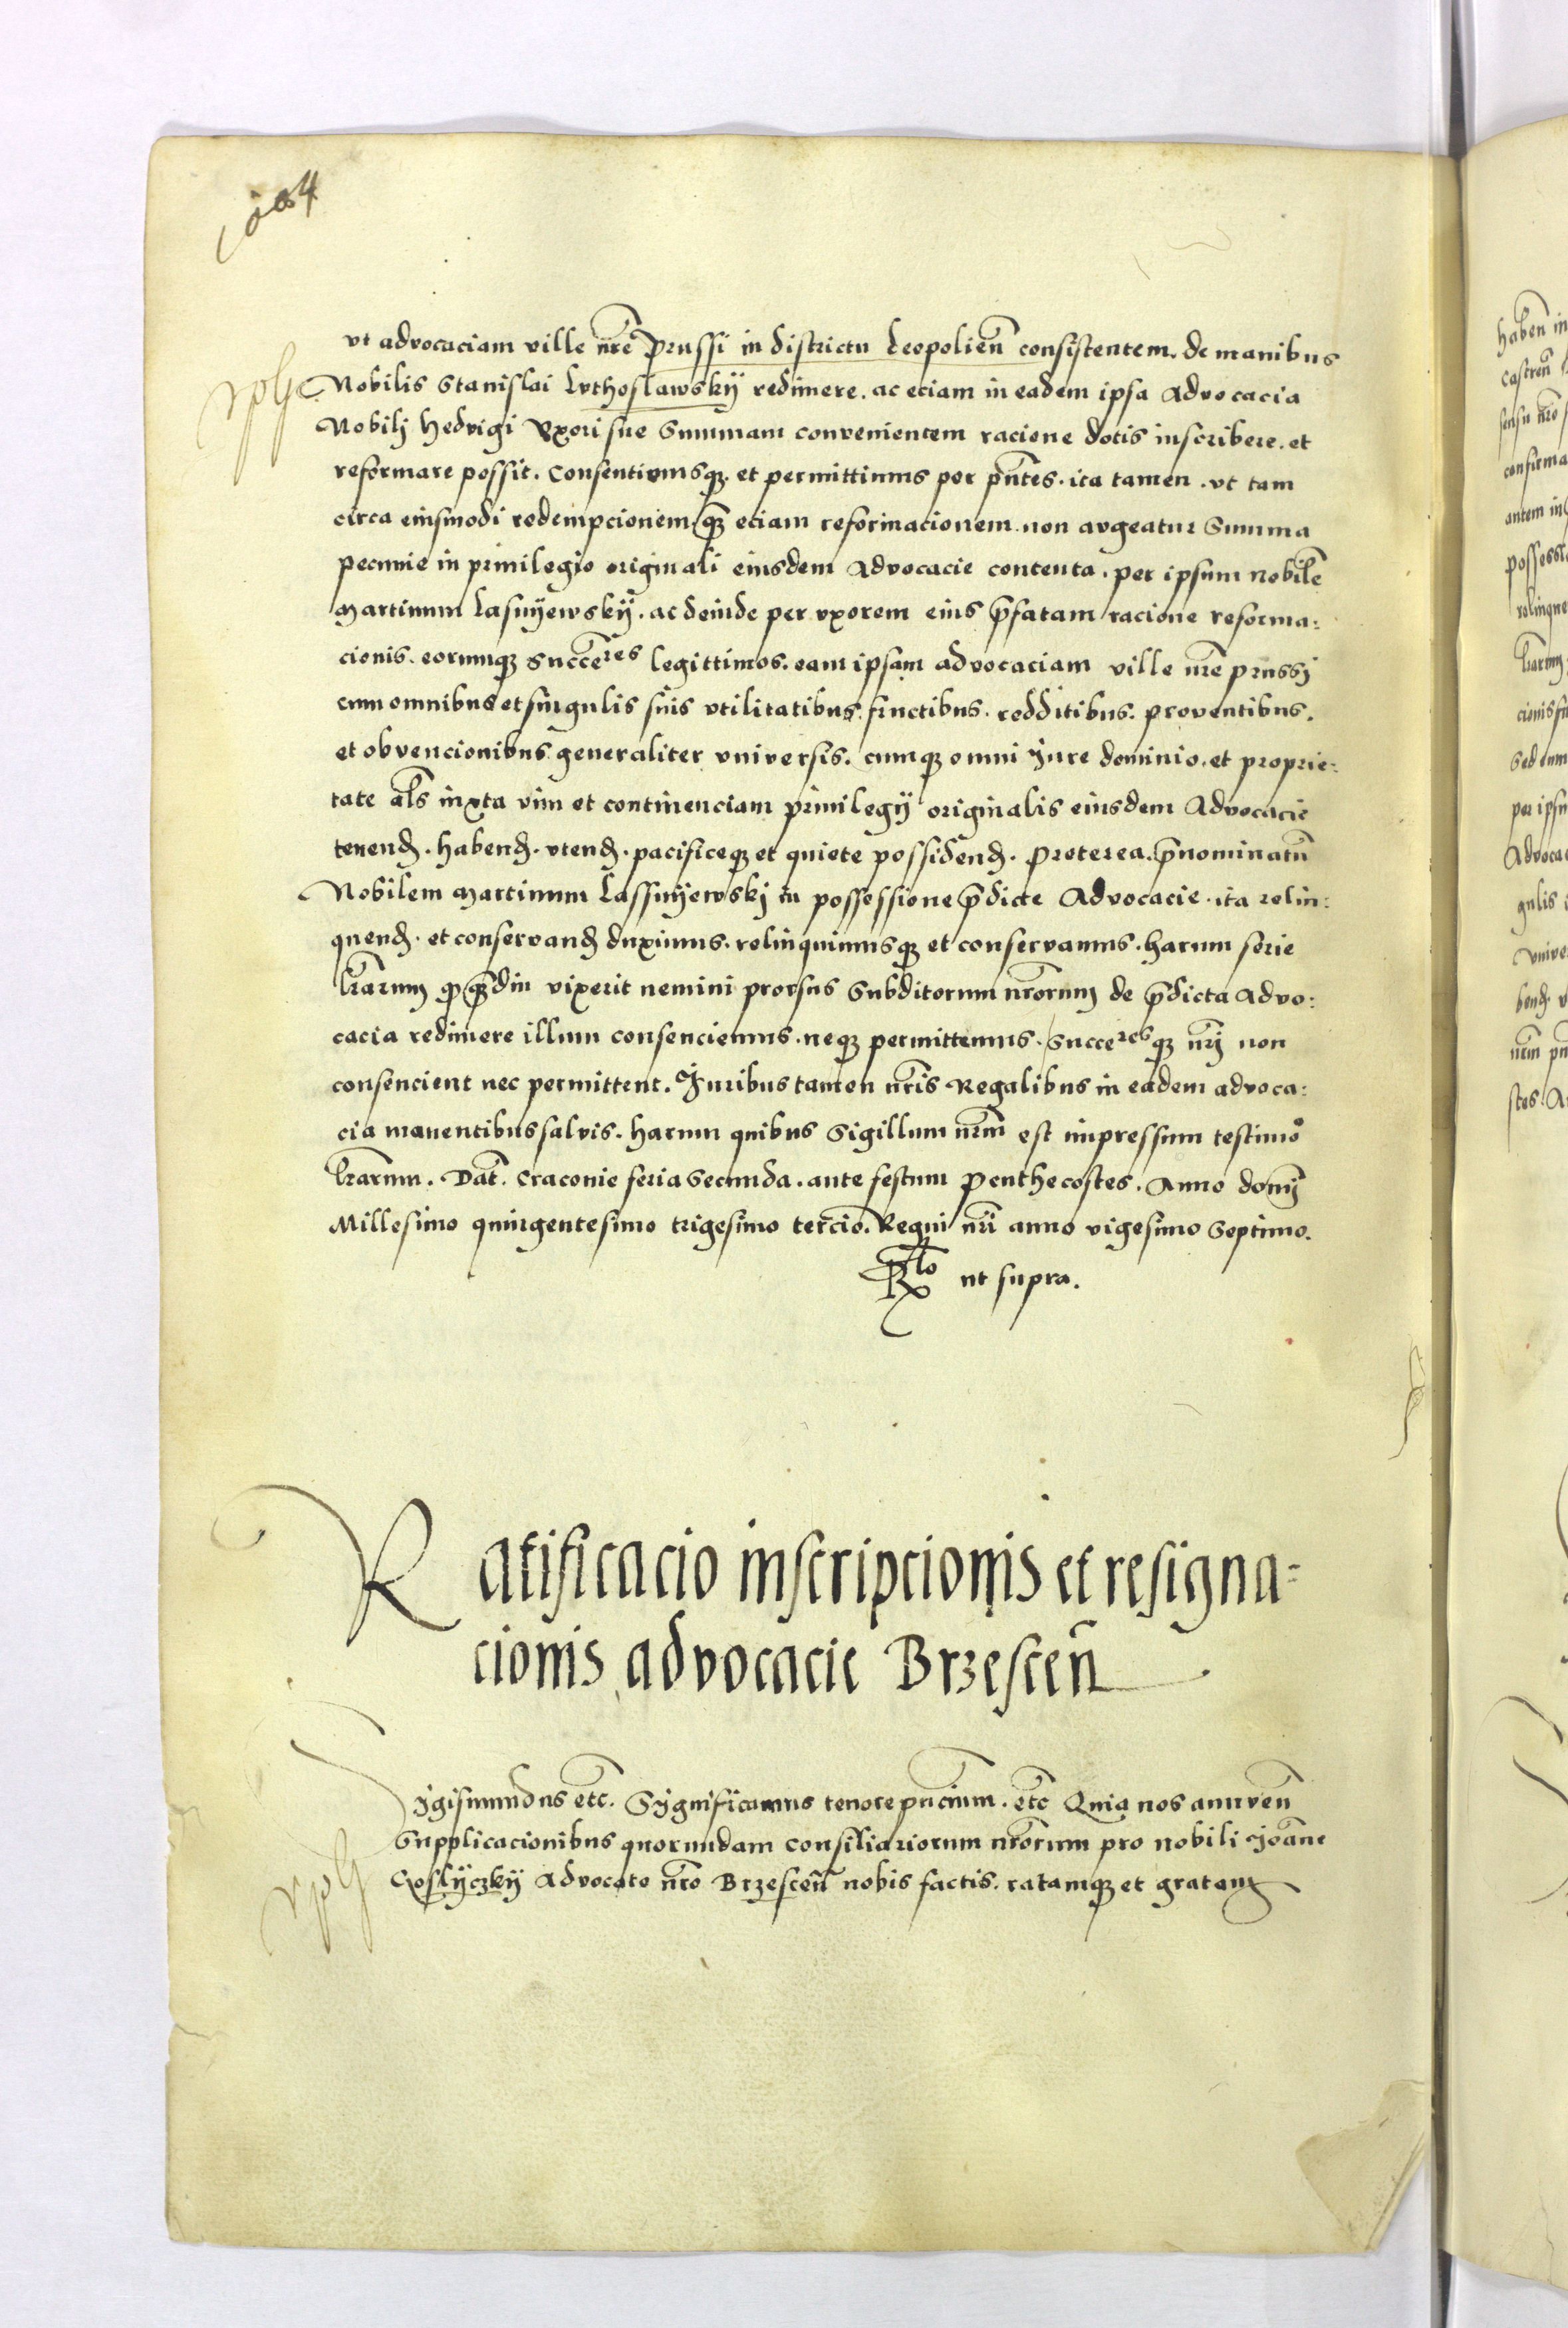 vt advocaciam ville nre Prussi in districtu Leopolien consistentem. de manibus
Nobilis Stanislai Luthoslawskij redimere. ac eciam in eadem ipsa Advocacia
Nobilj Hedvigi Vxori sue Summam convenientem racione dotis inscribere. et
reformare possit. Consentimusq3. et permittimus per pntes. ita tamen. vt tam
circa eiusmodi redempcionem. q3 eciam reformacionem non avgeatur Summa
pecunie in privilegio originali eiusdem Advocacie contenta. per ipsum nobilem
Martinum Lasnyewskij. ac deinde per vxorem eius pfatam racione reforma:
cionis. eorumq3 Succeres legittimos. eam ipsam advocaciam ville nre Prussj
cum omnibus et singulis suis vtilitatibus. fructibus. redditibus. proventibus.
et obvencionibus generaliter vniversis. cumq3 omni Jure dominio. et proprie:
tate als iuxta vim et continenciam privilegij originalis eiusdem Advocacie
tenend. habend. vtend. pacificeq3 et quiete possidend. Preterea. pnominatu
Nobilem Martinum Lassnyewskj in possessione pdicte Advocacie. ita relin:
quend. et conservand duximus. relinquimusq3 et conservamus. harum serie
lrarum q q3diu vixerit nemini prorsus Subditorum nrorum de pdicta Advo:
cacia redimere illum consenciemus. neq3 permittemus. Succeresq3 nrj non
consencient nec permittent. Juribus tamen nris Regalibus in eadem advoca:
cia manentibus salvis. Harum quibus Sigillum nrm est impressum testimo
lrarum. Dat. Craconie feria Secunda. ante festum Penthecostes. Anno domj
Millesimo quingentesimo trigesimo tercio. Regni nri anno vigesimo Septimo.
Rlo ut supra.
Ratificacio inscripcionis et resigna:
cionis advocacie Brzescen
Sygismundus etc. Sygnificamus tenore pncium. etc Quia nos annuen
Supplicacionibus quorundam Consiliariorum nrorum pro nobili Joane
Coslyczkij Advocato nro Brzescen nobis factis. ratamq3 et gratam